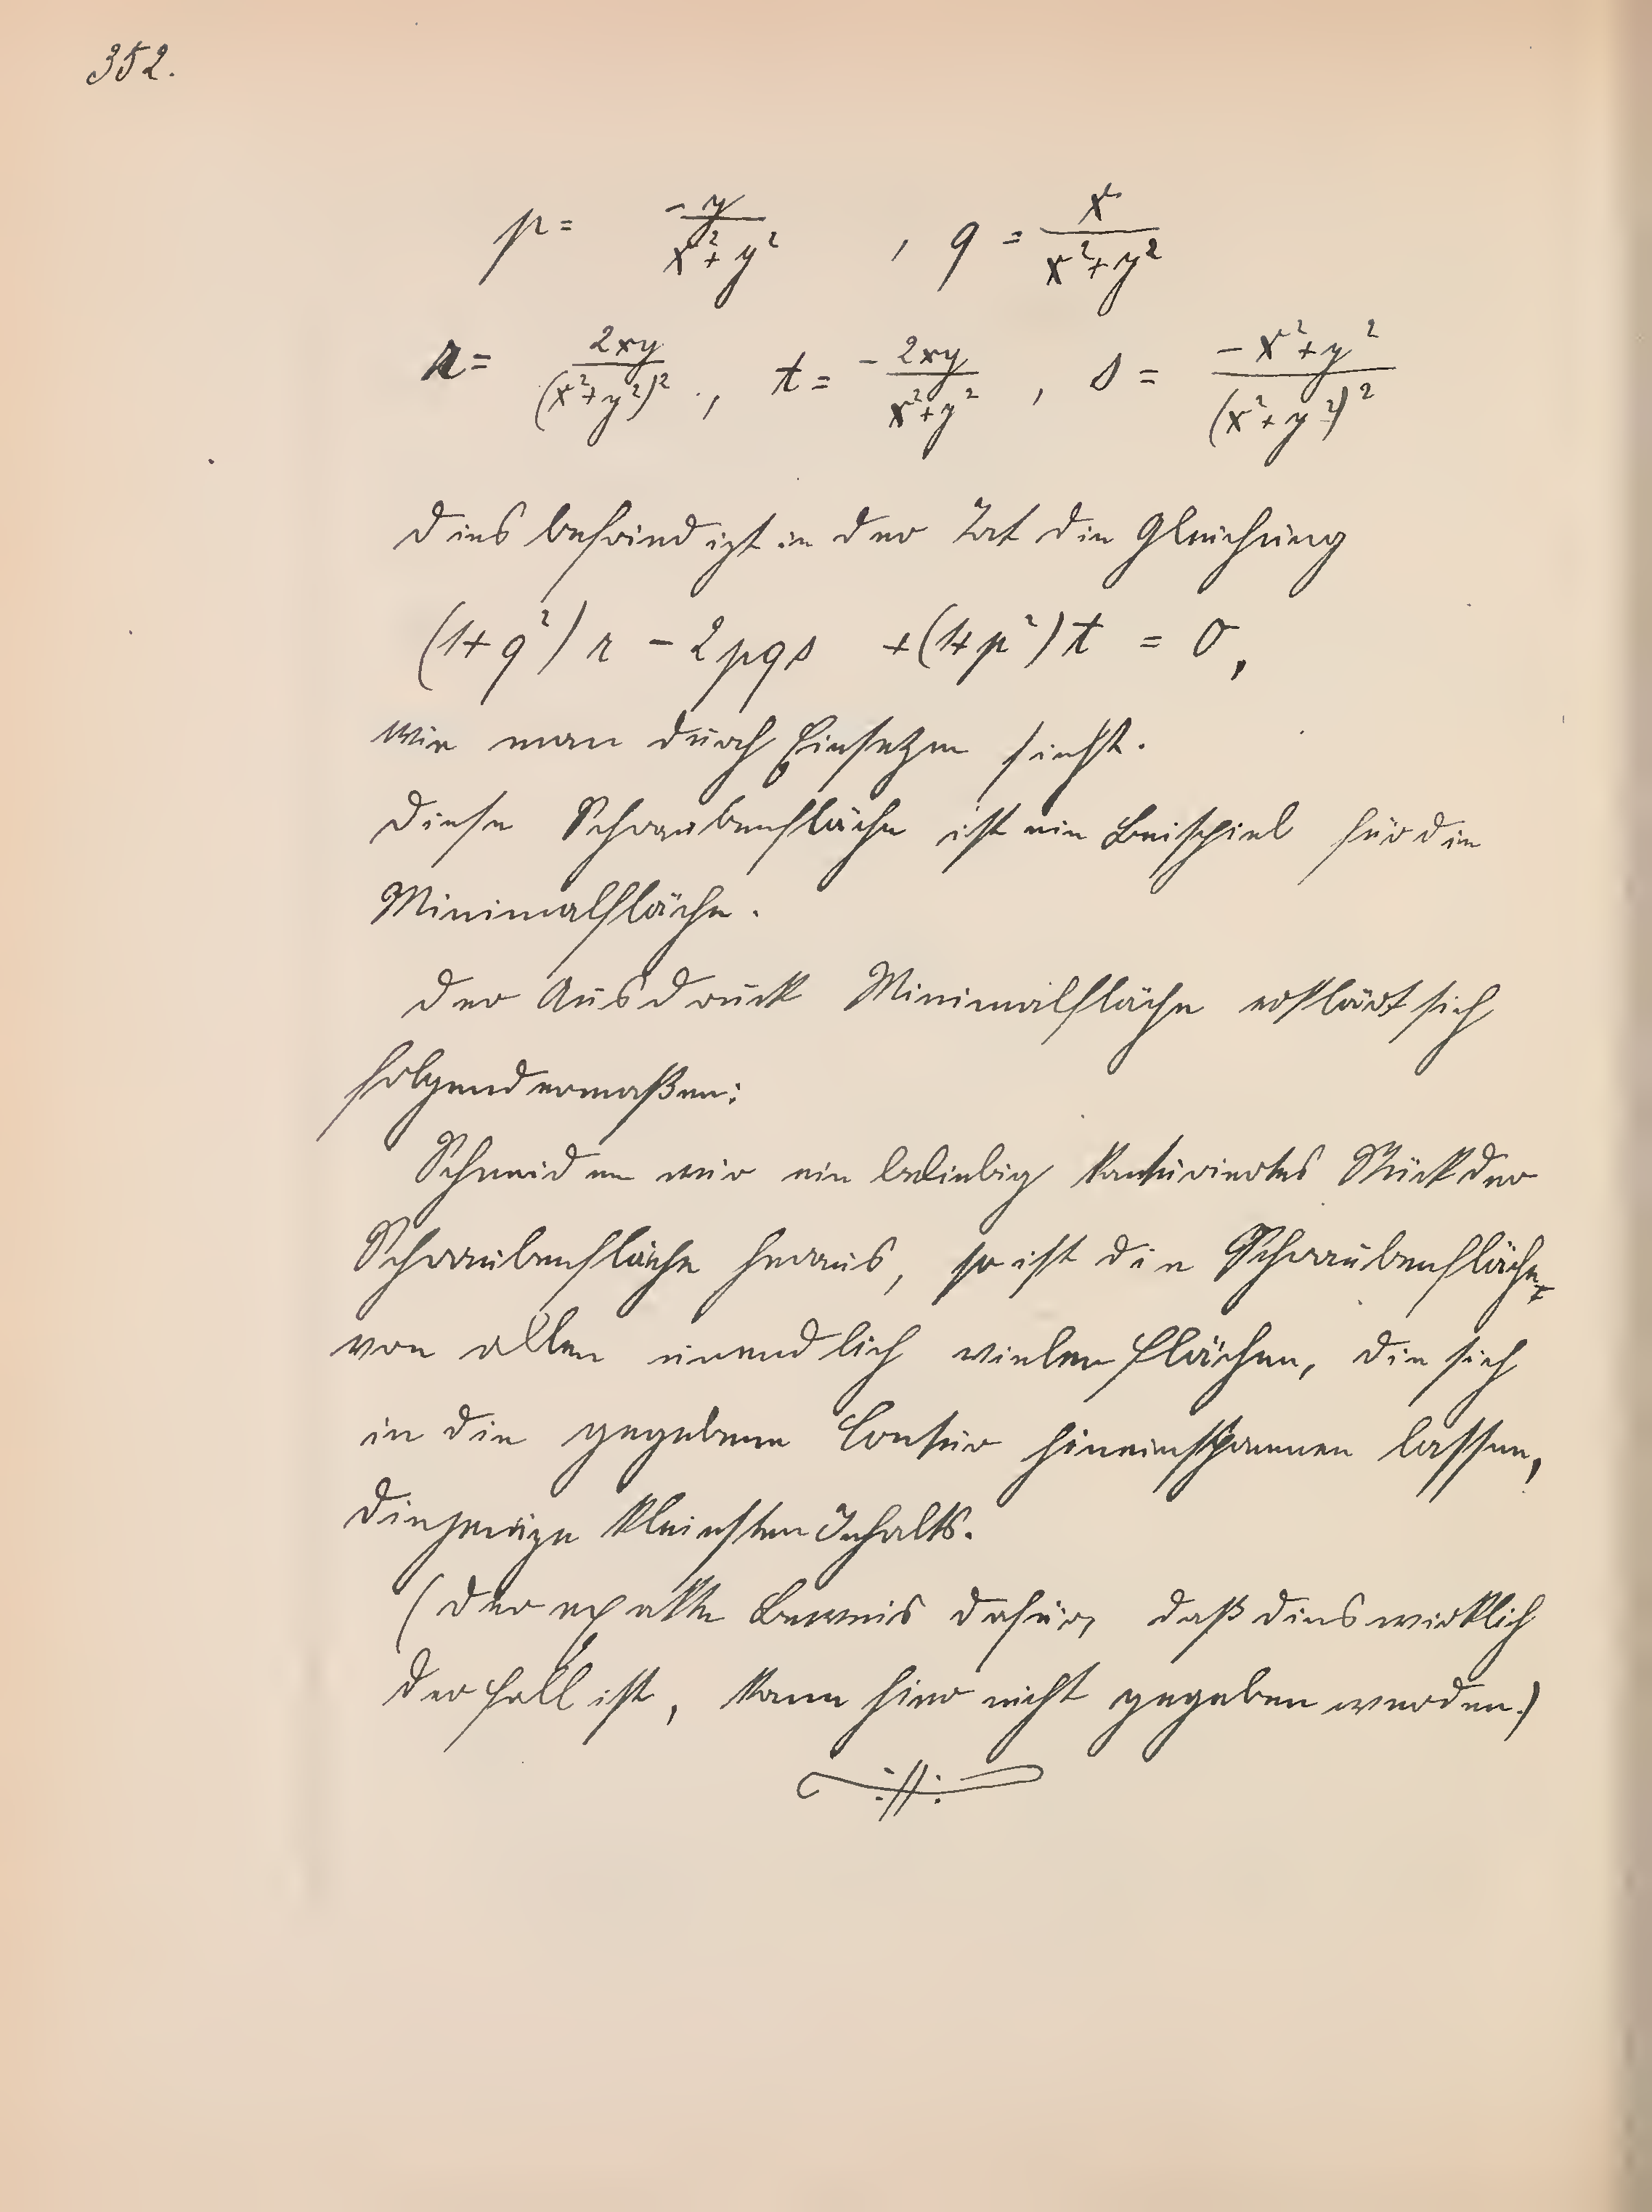 352.
p = -y/(x²+y²) , q = x/(x²+y²)
r = 2xy/(x²+y²)² , t = - 2xy/(x²+y²) , s = (-x²+y²)/(x²+y²)²
dies befriedigt in der Tat die Gleichung
(1+q²) r - 2pqs + (1+p²) t = 0,
wie man durch Einsetzen sieht.
Diese Schraubenfläche ist ein Beispiel für die
Minimalfläche.
Der Ausdruck Minimalfläche erklärt sich
folgendermaßen:
Schneiden wir ein beliebig konturiertes Stück der
Schraubenfläche heraus, so ist die Schraubenfläche
von allen unendlich vielen Flächen, die sich
in die gegebene Contur hineinspannen lassen,
diejenige kleinsten Inhalts.
(Der exakte Beweis dafür, daß dies wirklich
der Fall ist, kann hier nicht gegeben werden.)